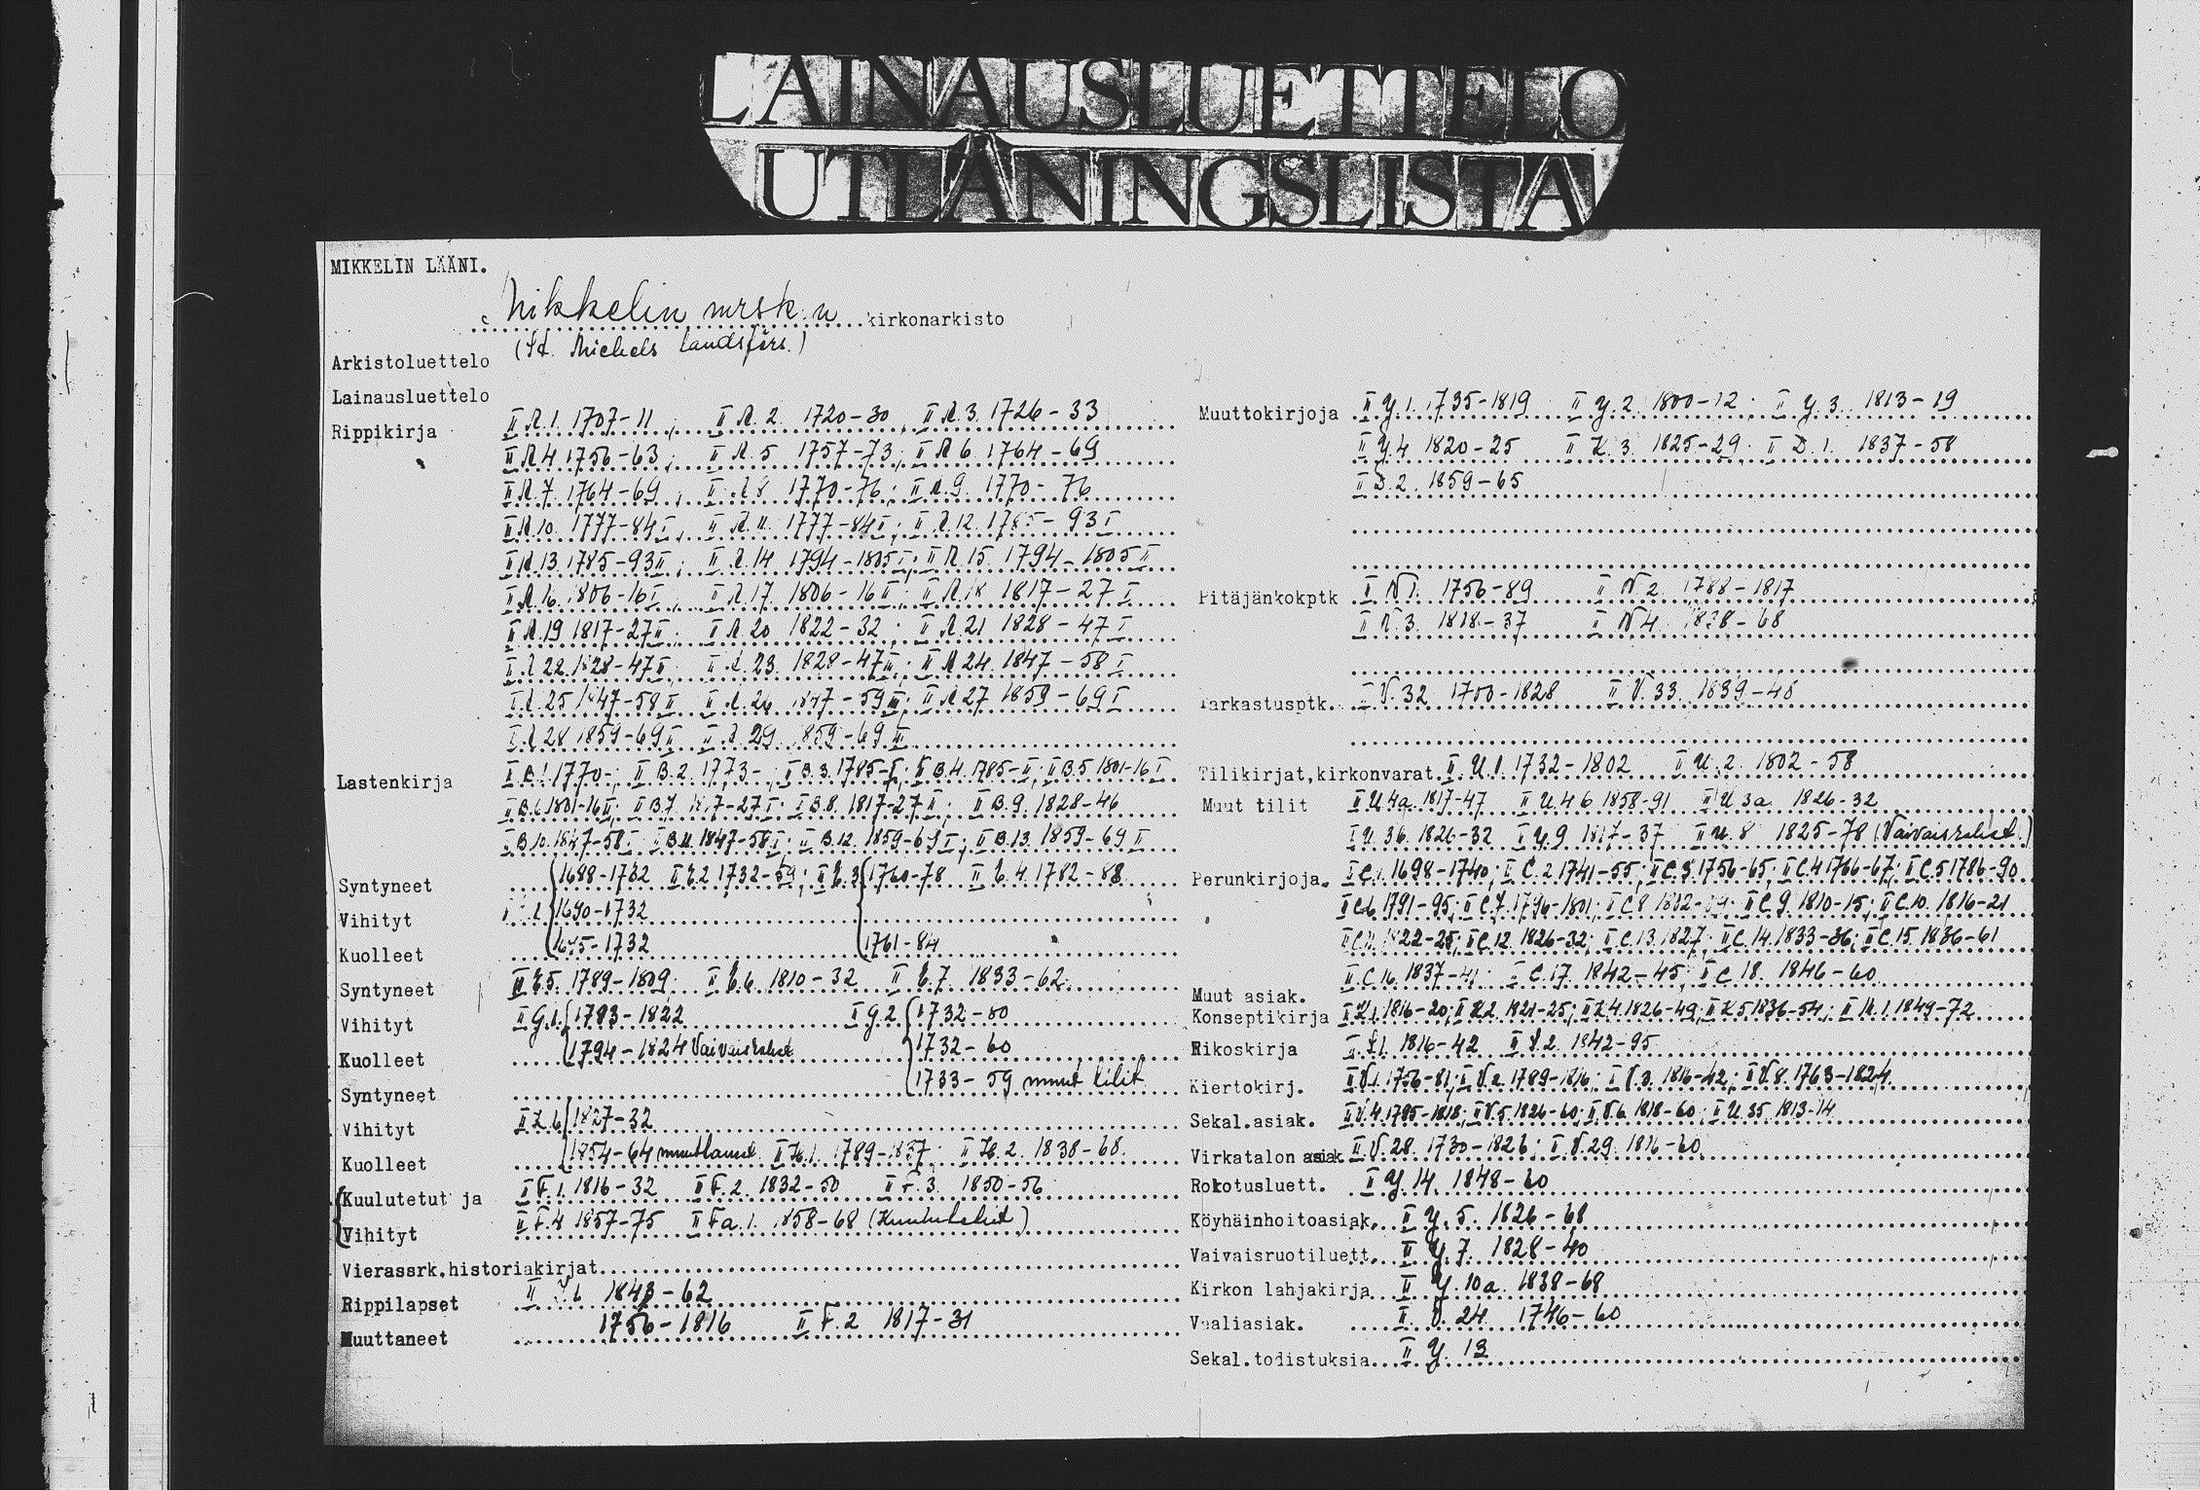 LAINAUSLUETTELO
UTLÅNINGSLISTA
MIKKELIN LÄÄNI.
Mikkelin mrsk:n kirkonarkisto
(St. Michels landsförs.)
Arkistoluettelo
Lainausluettelo
Rippikirja II A.1. 1707-11; II A.2. 1720-30; II A.3. 1726-33
II A 4 1756-63; II A.5 1757-73; II A 6 1764-69
II A.7. 1764-69; II A 8 1770-76; II A.9. 1770-76
II A 10. 1777-84 I; II A.11. 1777-84 II; II A.12. 1785-93 I
II A.13. 1785-93 II; II A.14 1794-1805 I; II A.15. 1794-1805 II
II A.16. 1806-16 I; II A 17. 1806-16 II; II A.18 1817-27 I
II A.19 1817-27 II; II A 20 1822-32; II A 21 1828-47 I
II A 22. 1828-47 II; II A. 23. 1828-47 III; II A 24. 1847-58 I
II A. 25 1847-58 II II A. 26 1847-59 III; II A 27 1859-69 I
II A 28 1859-69 II II A 29 1859-69 III
Lastenkirja II B.1. 1770-; II B.2. 1773-; II B.3. 1785-I; II B.4. 1785-II; II B.5 1801-16 I
II B.6. 1801-16 II; II B.7. 1817-27 I; II B.8. 1817-27 II; II B.9. 1828-46
II B.10. 1847-58 I II B.11. 1847-58 II; II B.12. 1859-69 I; II B.13. 1859-69 II
Syntyneet 1688-1732 1732-59; 1760-78 1782-88
Vihityt 1690-1732
Kuolleet 1695-1732 1761-84
Syntyneet 1789-1809; 1810-32 1833-62
Vihityt II G.1. 1783-1822 II G.2. 1732-80
Kuolleet 1794-1824 1732-60
1733-59 muut tilit
Syntyneet
Vihityt 1827-32
Kuolleet 1854-64 II H.1. 1789-1837; II H.2. 1838-68.
Kuulutetut ja II F.1. 1816-32 II F.2. 1832-50 II F.3. 1850-56
Vihityt II F.4 1857-75 II Fa.1. 1858-68
Vierassrk.historiakirjat
Rippilapset 1843-62
Muuttaneet 1756-1816 II F.2 1817-31
Muuttokirjoja II Y.1. 1735-1819 II Y.2. 1800-12 II Y.3. 1813-19
II Y.4 1820-25 II K.3. 1825-29 II D.1. 1837-58
II D.2 1859-65
Pitäjänkokptk II N 1. 1756-89 II N 2. 1788-1817
II N 3. 1818-37 II N 4. 1838-68
Tarkastusptk. II V.32 1700-1828 II V.33. 1839-48
Tilikirjat,kirkonvarat II U.1. 1732-1802 II U.2. 1802-58
Muut tilit II U.4a. 1817-47 II U.4b 1858-91 II U 3a. 1826-32
II U.3b. 1826-32 II Y.9. 1817-37 II U.8 1825-78
Perunkirjoja. II C.1. 1698-1740; II C.2 1741-55; II C.3. 1756-65; II C.4 1766-67; II C.5 1786-90
II C.6. 1791-95; II C.7. 1796-1801; II C.8 1802-09; II C.9. 1810-15; II C.10. 1816-21
II C.11. 1822-25; II C.12. 1826-32; II C.13. 1827; II C.14. 1833-36; II C.15. 1836-61
II C.16. 1837-41; II C.17. 1842-45; II C.18. 1846-60
Muut asiak.
Konseptikirja II K.1. 1816-20; II K.2. 1821-25; II K.4. 1826-49; II K.5. 1836-54; 1849-72
Rikoskirja 1816-42 1842-95
Kiertokirj. II V.1. 1756-81; II V.2. 1789-1816; II V.3. 1816-42; II V.8. 1763-1824
Sekal.asiak. II V.4. 1785-1818; II V.5. 1826-60; II V.6. 1818-60; II U.35 1813-14
Virkatalon asiak II V.28. 1730-1826; II V.29. 1816-60
Rokotusluett. II Y.14. 1848-60
Köyhäinhoitoasiak. II Y.5. 1826-68
Vaivaisruotiluett. II Y.7. 1828-40
Kirkon lahjakirja II Y.10a. 1838-68
Vaaliasiak. II V.24. 1746-60
Sekal.todistuksia II Y.13